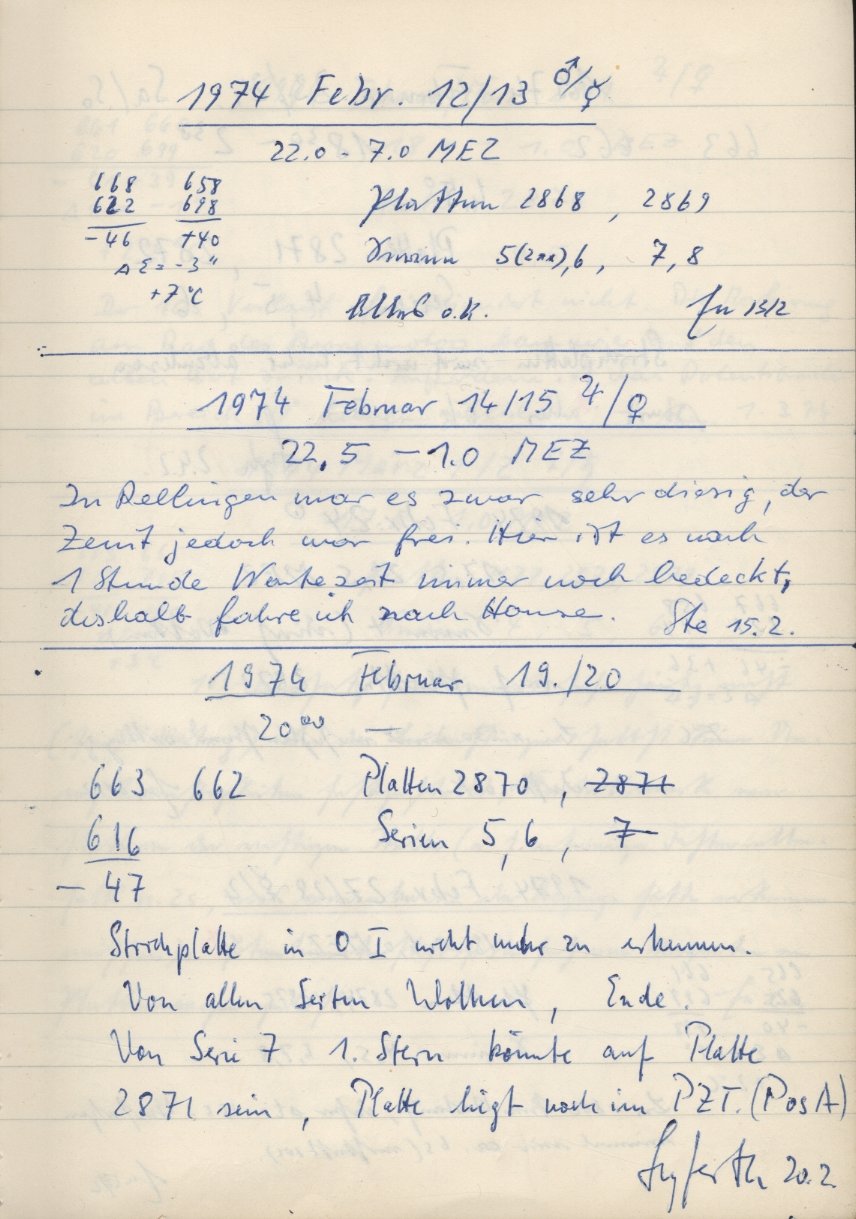 1974 Febr. 12/13 ♂/☿
22.0 - 7.0 MEZ
668 658 Platten 2868, 2869
622 698
-46 +40 5(2××),6, 7, 8
Δε = -3"
+7°C o.k. 13/2
1974 Februar 14/15 ♃/♀
22.5 - 1.0 MEZ
In Rellingen war es zwar sehr diesig, der
Zenit jedoch war frei. Hier ist es nach
1 Stunde Wartezeit immer noch bedeckt,
deshalb fahre ich nach Hause. Ste 15.2.
1974 Februar 19./20
20°° —
663 662 Platten 2870, 2871
616 Serien 5, 6, 7
- 47
Strichplatte in O I nicht mehr zu erkennen.
Von allen Seiten Wolken, Ende.
Von Serie 7 1. Stern könnte auf Platte
2871 sein, Platte liegt noch im PZT. (Pos A)
Seyferth 20.2.